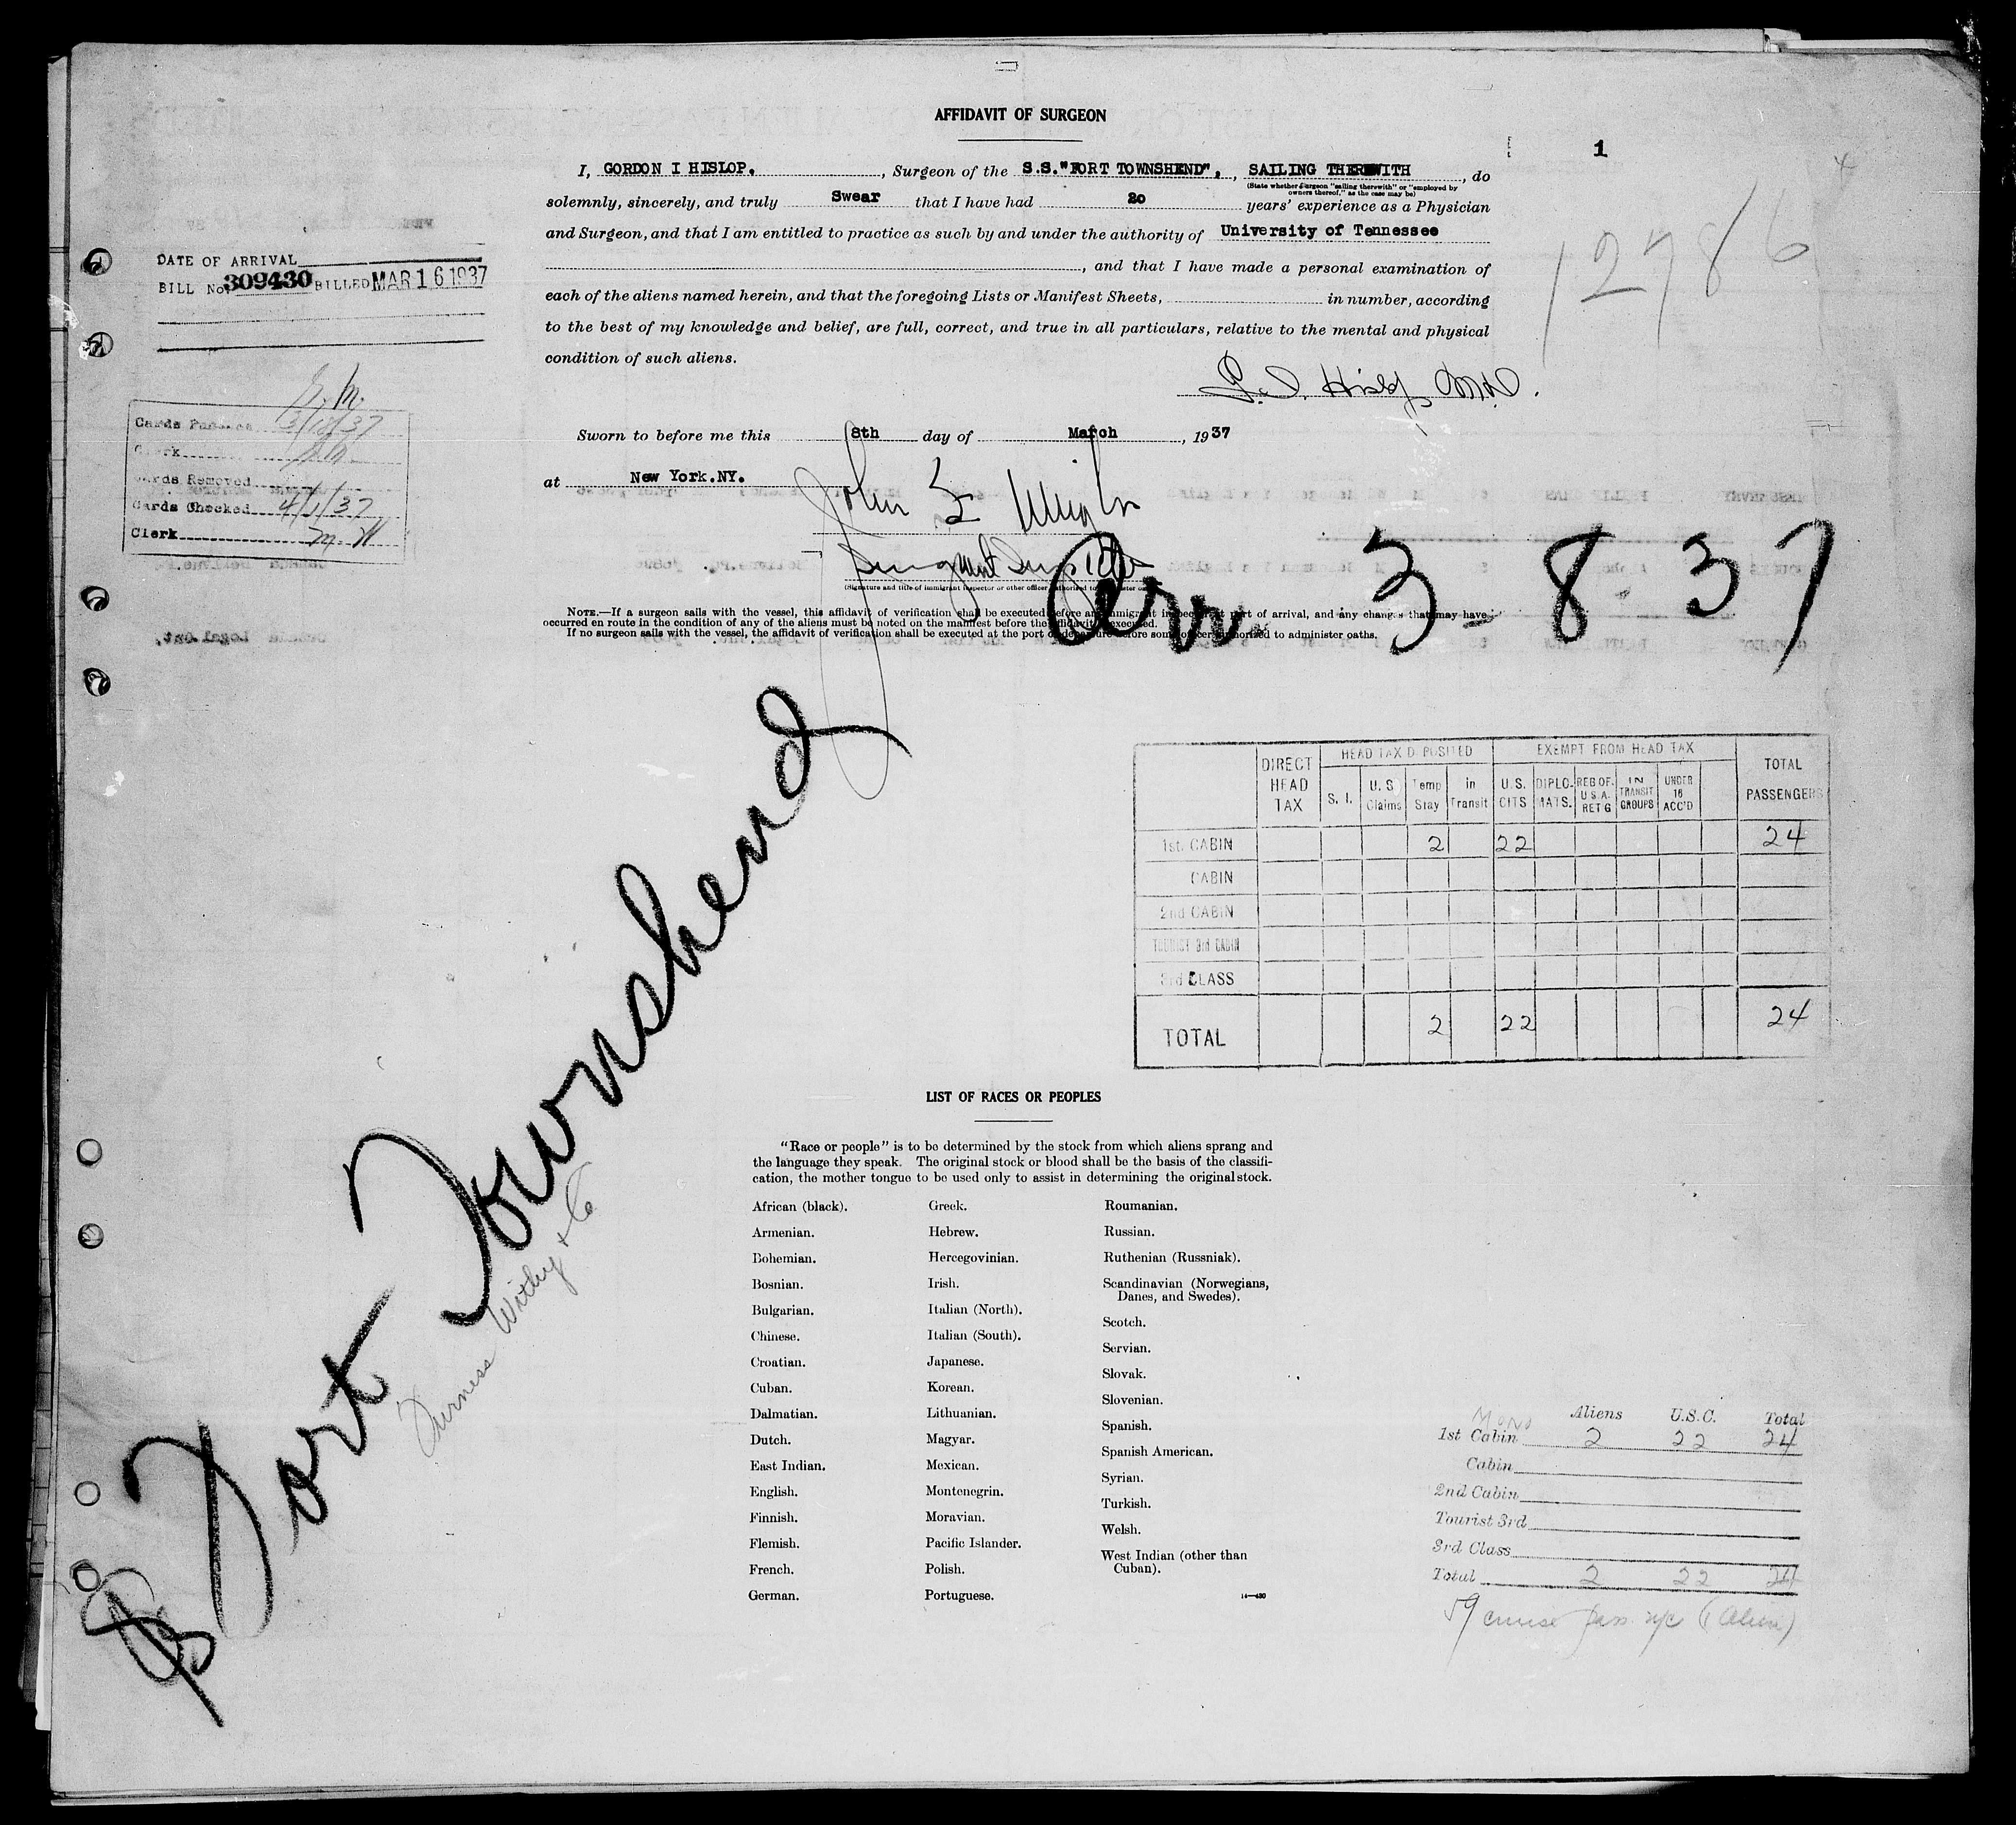 AFFIDAVIT OF SURGEON
1
I, GORDON I HISLOP. , Surgeon of the S.S."FORT TOWNSHEND", , SAILING THEREWITH , do
(State whether Surgeon "sailing therewith" or "employed by
owners thereof," as the case may be)
solemnly, sincerely, and truly Swear that I have had 20 years' experience as a Physician
and Surgeon, and that I am entitled to practice as such by and under the authority of University of Tennessee
, and that I have made a personal examination of
each of the aliens named herein, and that the foregoing Lists or Manifest Sheets, in number, according
to the best of my knowledge and belief, are full, correct, and true in all particulars, relative to the mental and physical
condition of such aliens.
12786
DATE OF ARRIVAL
BILL No. 309430 BILLED MAR 16 1937
G. I. Hislop M.D.
Cards Punched 3/18/37
Clerk
Cards Removed
Cards Checked 4/1/37
Clerk M. W
Sworn to before me this 8th day of March , 1937
at New York.NY.
John
(Signature and title of immigrant inspector or other officer authorized to administer oaths)
Arr 3-8-37
NOTE.—If a surgeon sails with the vessel, this affidavit of verification shall be executed before an immigrant inspector at port of arrival, and any changes that may have
occurred en route in the condition of any of the aliens must be noted on the manifest before the affidavit is executed.
If no surgeon sails with the vessel, the affidavit of verification shall be executed at the port of departure before some officer authorized to administer oaths.
SS Fort Townshend
Furness Withy & Co
DIRECT HEAD TAX
HEAD TAX DEPOSITED
EXEMPT FROM HEAD TAX
TOTAL PASSENGERS
S. I. U. S Claims Temp Stay in Transit U.S. CITS DIPLO-MATS. REG OF. U.S.A. RET G IN TRANSIT GROUPS UNDER 16 ACC'D
1st. CABIN 2 22 24
CABIN
2nd CABIN
TOURIST 3rd CABIN
3rd CLASS
TOTAL 2 22 24
LIST OF RACES OR PEOPLES
"Race or people" is to be determined by the stock from which aliens sprang and
the language they speak. The original stock or blood shall be the basis of the classifi-
cation, the mother tongue to be used only to assist in determining the original stock.
African (black).
Armenian.
Bohemian.
Bosnian.
Bulgarian.
Chinese.
Croatian.
Cuban.
Dalmatian.
Dutch.
East Indian.
English.
Finnish.
Flemish.
French.
German.
Greek.
Hebrew.
Hercegovinian.
Irish.
Italian (North).
Italian (South).
Japanese.
Korean.
Lithuanian.
Magyar.
Mexican.
Montenegrin.
Moravian.
Pacific Islander.
Polish.
Portuguese.
Roumanian.
Russian.
Ruthenian (Russniak).
Scandinavian (Norwegians,
Danes, and Swedes).
Scotch.
Servian.
Slovak.
Slovenian.
Spanish.
Spanish American.
Syrian.
Turkish.
Welsh.
West Indian (other than
Cuban).
14—430
Aliens U.S.C. Total
1st Cabin 2 22 24
Cabin
2nd Cabin
Tourist 3rd
3rd Class
Total 2 22 24
59 cruise pass n/c (1 Alien)